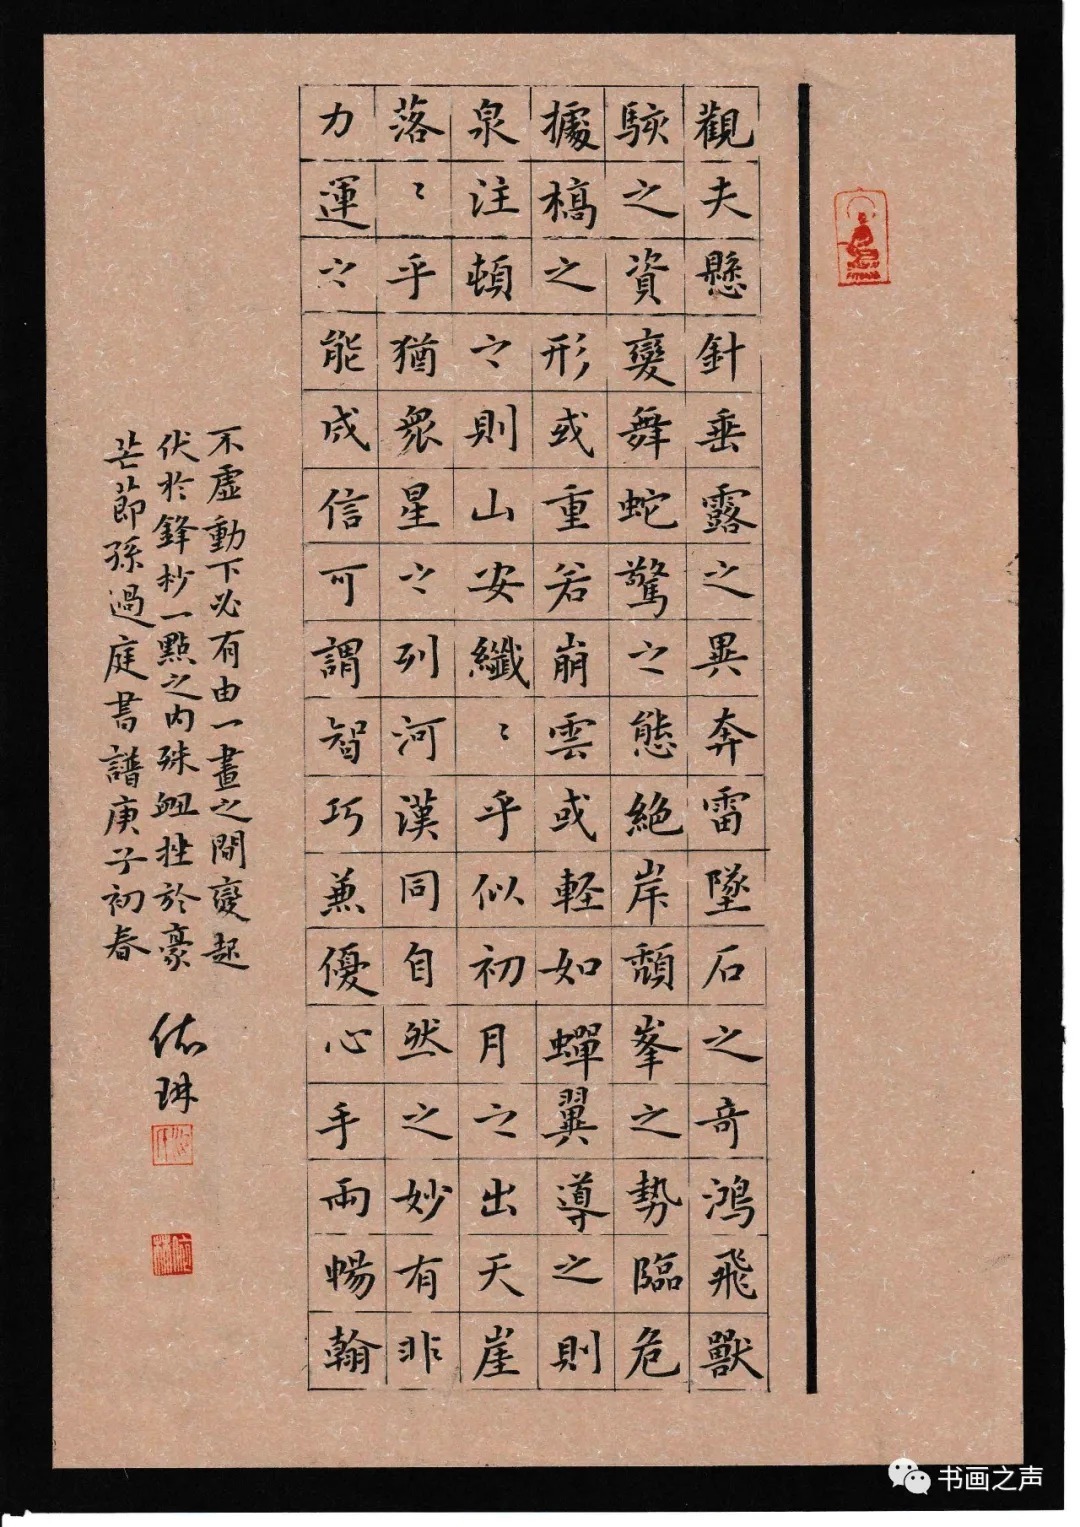 觀夫懸針垂露之異奔雷墜石之奇鴻飛獸
駭之資鸞舞蛇驚之態絕岸頹峯之勢臨危
據槁之形或重若崩雲或輕如蟬翼導之則
泉注頓之則山安纖〻乎似初月之出天崖
落〻乎猶眾星之列河漢同自然之妙有非
力運之能成信可謂智巧兼優心手雨暢翰
不虛動下必有由一畫之間變起
伏於鋒杪一點之內殊衄挫於豪
芒節孫過庭書譜庚子初春
依琳
书画之声